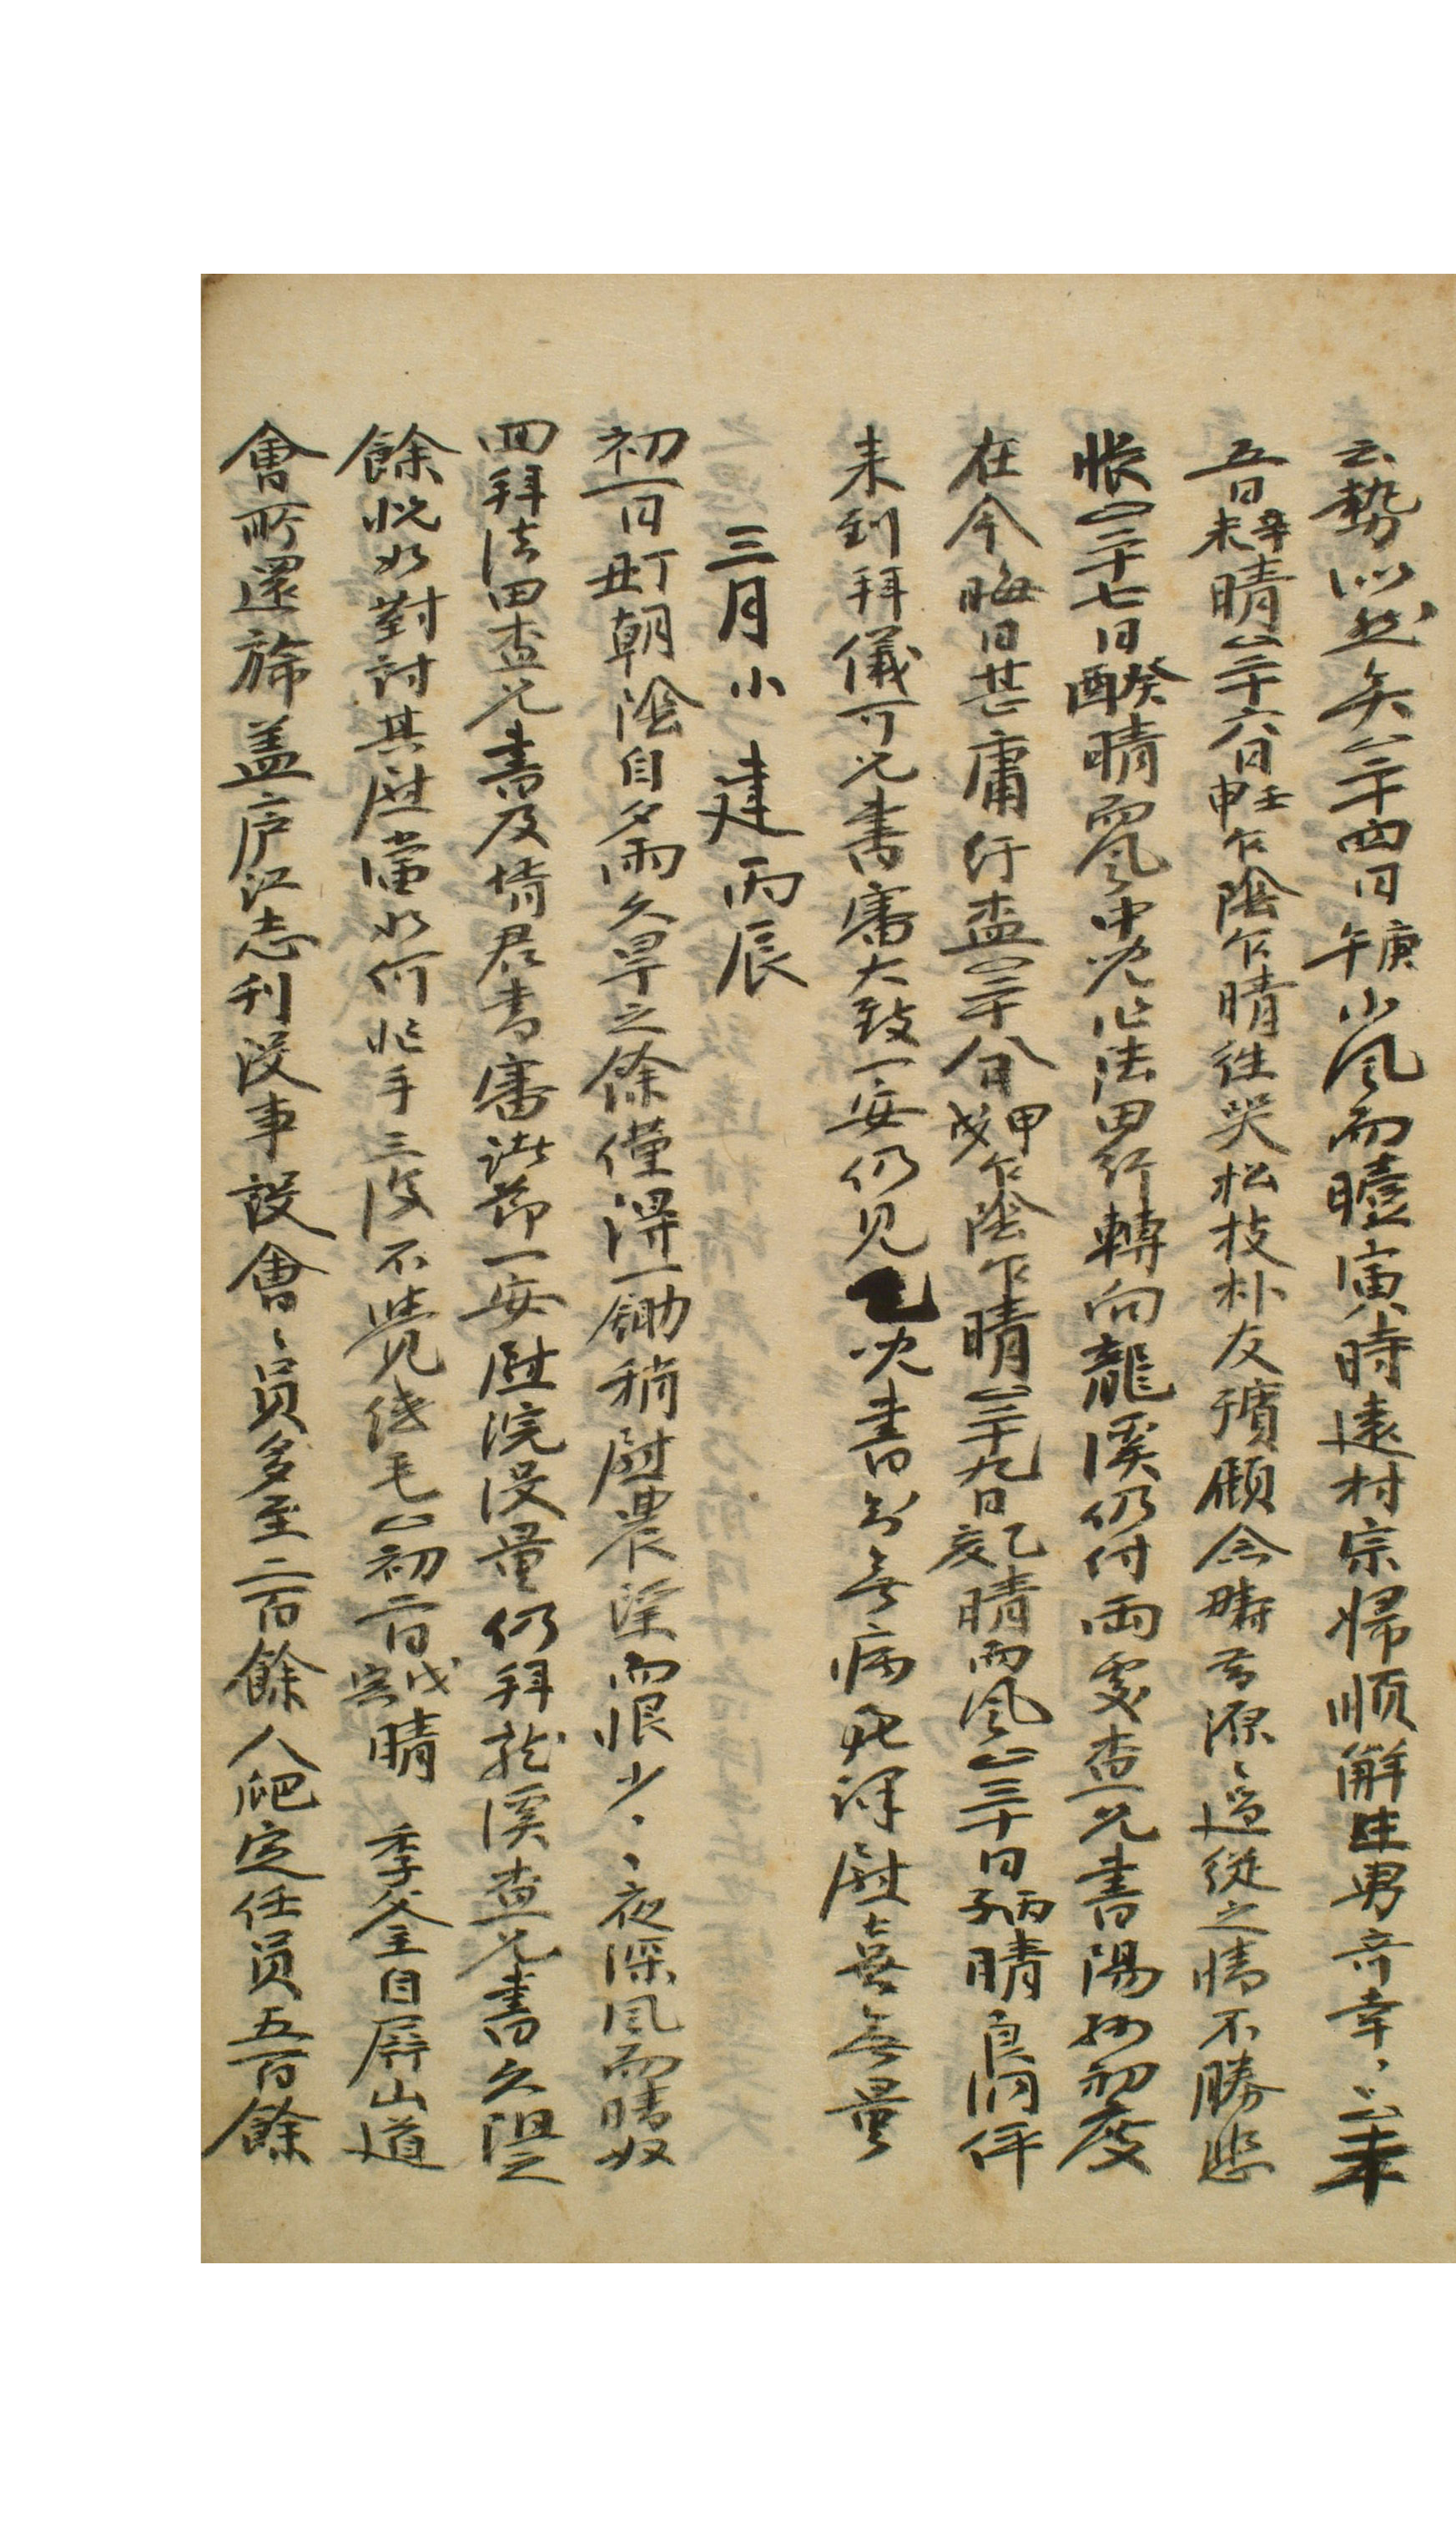 云勢似然矣△二十四日庚午小風而曀寅時遠村宗婦順解生男奇幸〻△二十
五日辛未晴△二十六日壬申乍陰乍晴往哭松枝朴友殯顧念疇昔源〻過從之情不勝悲
悵△二十七日癸酉晴而風中兒作法田行轉向龍溪仍付両處查兄書陽孫初度
在今晦日甚庸紆盃△二十八日甲戌乍陰乍晴△二十九日乙亥晴而風△三十日丙子晴良洞伻
来到拜儀可兄書審大致一安仍見 兒書知無病免課慰喜無量
三月小建丙辰
初一日丁丑朝陰自夕雨久旱之餘僅得一鋤稍慰農望而恨少〻夜深風而晴奴
回拜法田查兄書及情君書審諸節一安慰浣沒量仍拜龍溪查兄書久阻之
餘怳如對討其慰當如何把手三復不覺紙毛△初二日戊寅晴 季父主自屏山道
會所還旆盖庐江志刊役事設會〻員多至二百餘人爬定任員五百餘